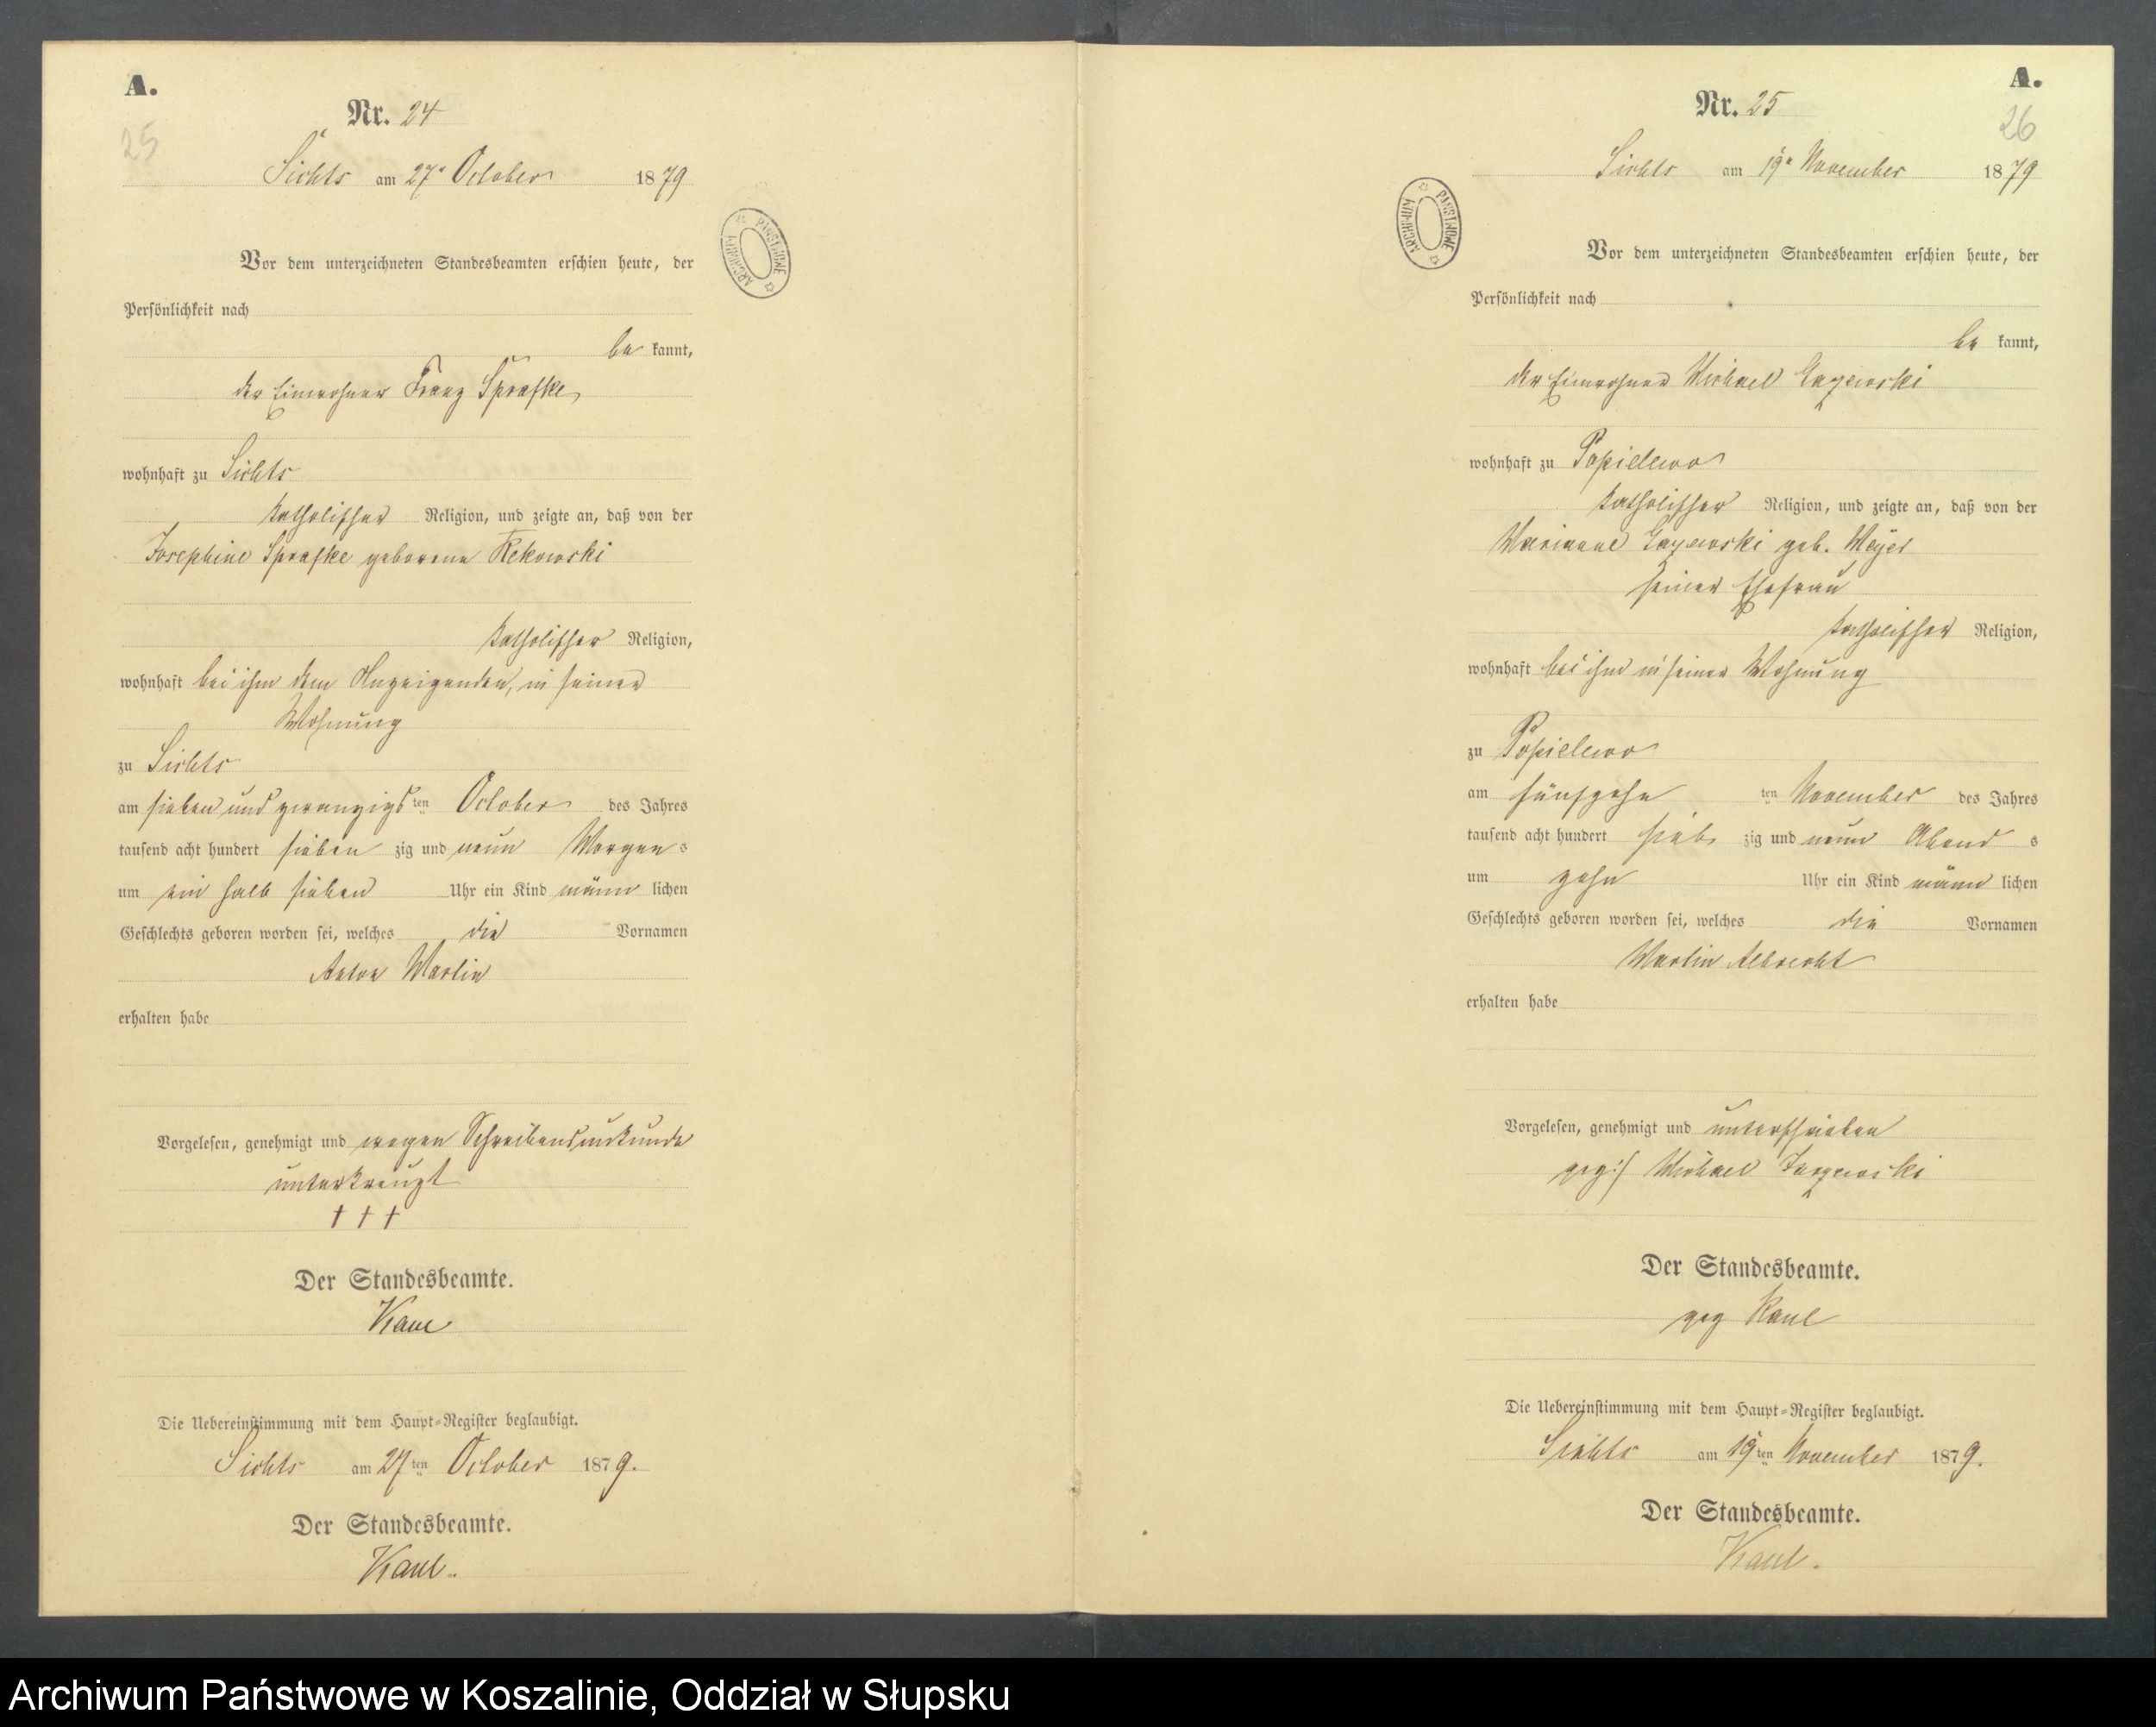 A.
25
Nr. 24
Sichts am 27n October 1879
Vor dem unterzeichneten Standesbeamten erschien heute, der
Persönlichkeit nach
be kannt,
der Einwohner Franz Sprafke
wohnhaft zu Sichts
katholischer Religion, und zeigte an, daß von der
Josephine Sprafke geborene Rekowski
katholischer Religion,
wohnhaft bei ihm dem Anzeigenden, in seiner
Wohnung
zu Sichts
am sieben und zwanzigsten October des Jahres
tausend acht hundert sieben zig und neun Morgens
um ein halb sieben Uhr ein Kind männ lichen
Geschlechts geboren worden sei, welches die Vornamen
Anton Martin
erhalten habe
Vorgelesen, genehmigt und wegen Schreibensunkunde
unterkreuzt
+ + +
Der Standesbeamte.
Kaul
Die Uebereinstimmung mit dem Haupt-Register beglaubigt.
Sichts am 27ten October 1879.
Der Standesbeamte.
Kaul.
ARCHIWUM PAŃSTWOWE
A.
26
Nr. 25
Sichts am 19n November 1879
Vor dem unterzeichneten Standesbeamten erschien heute, der
Persönlichkeit nach
be kannt,
der Einwohner Michael
wohnhaft zu Popielewo
katholischer Religion, und zeigte an, daß von der
Marianne geb. Meyer
seiner Ehefrau
katholischer Religion,
wohnhaft bei ihm in seiner Wohnung
zu Popielewo
am fünfzehn ten November des Jahres
tausend acht hundert sieb zig und neun Abend s
um zehn Uhr ein Kind männ lichen
Geschlechts geboren worden sei, welches die Vornamen
Martin Albrecht
erhalten habe
Vorgelesen, genehmigt und unterschrieben
gez:/ Michael
Der Standesbeamte.
gez Kaul
Die Uebereinstimmung mit dem Haupt-Register beglaubigt.
Sichts am 19ten November 1879.
Der Standesbeamte.
Kaul.
ARCHIWUM PAŃSTWOWE
Archiwum Państwowe w Koszalinie, Oddział w Słupsku